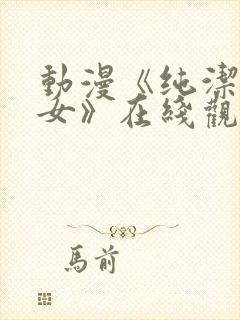 動漫《纯潔
女》在綫觀
馬前